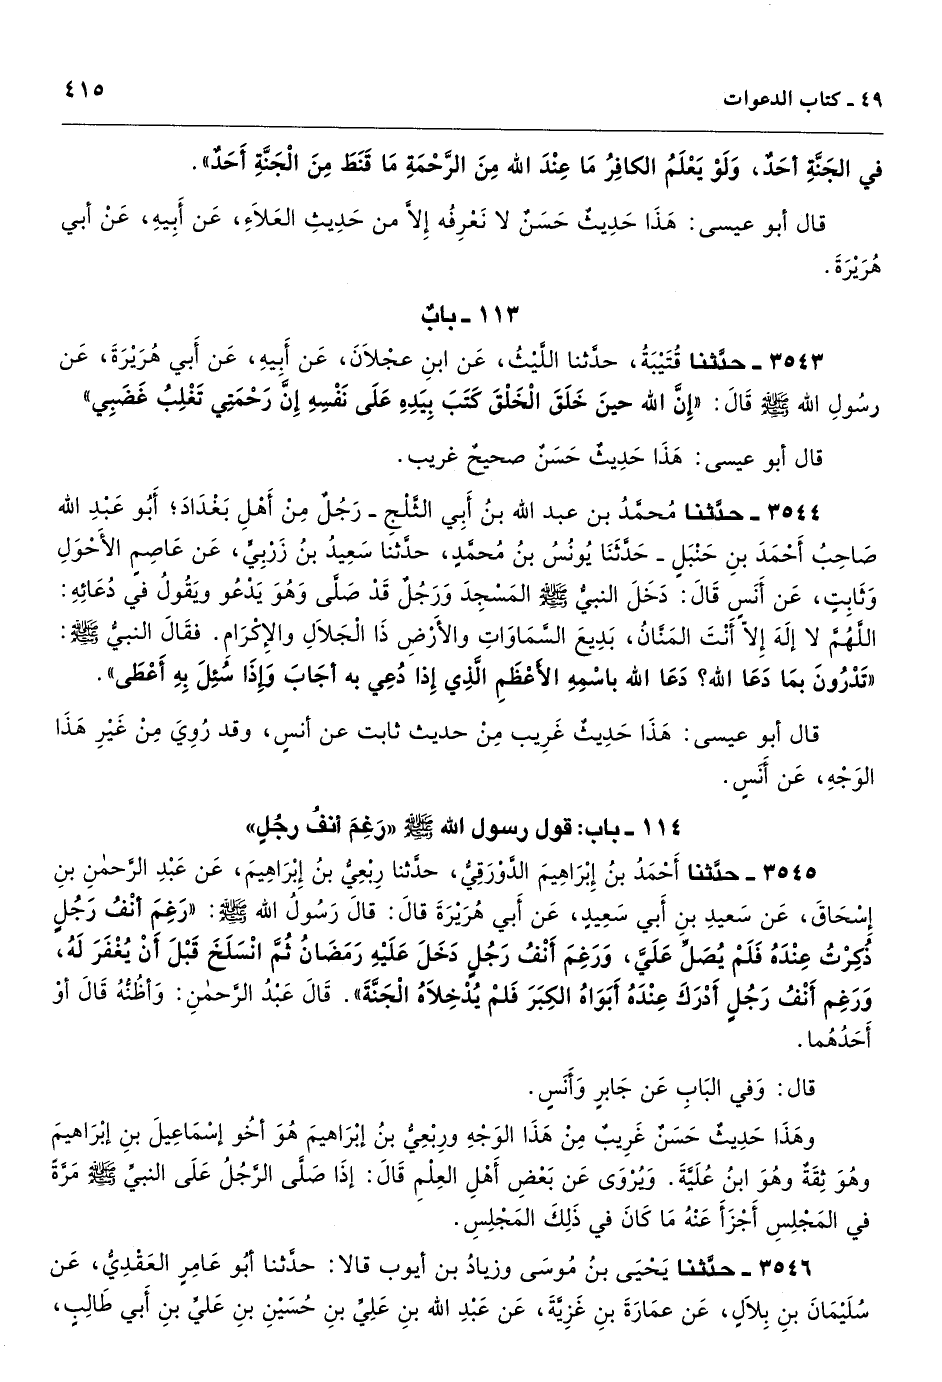 ٤٩ ـ كتاب الدعوات
٤١٥
في الجَنَّةِ أحَدٌ، وَلَوْ يَعْلَمُ الكافِرُ مَا عِنْدَ الله مِنَ الرَّحْمَةِ مَا قَنَطَ مِنَ الْجَنَّةِ أَحَدٌ».
قال أبو عيسى: هَذَا حَدِيثٌ حَسَنٌ لا نَعْرِفُه إلاَّ من حَدِيثِ العَلاَءِ، عَن أَبِيهِ، عَنْ أبي
هُرَيْرَةَ.
١١٣ ـ بابٌ
٣٥٤٣ ـ حدَّثنا قُتَيْبَةُ، حدَّثنا اللَّيْثُ، عَن ابنِ عجْلاَنَ، عَن أَبِيهِ، عَن أبي هُرَيْرَةَ، عَن
رسُولِ الله ﷺ قَالَ: «إنَّ الله حينَ خَلَقَ الْخَلْقَ كَتَبَ بِيَدِهِ عَلَى نَفْسِهِ إنَّ رَحْمَتِي تَغْلِبُ غَضَبِي»
قال أبو عيسى: هَذَا حَدِيثٌ حَسَنٌ صحيحٌ غريب.
٣٥٤٤ ـ حدَّثنا مُحمَّدُ بن عبد الله بنُ أَبي الثَّلْجِ ـ رَجُلٌ مِنْ أَهْلِ بَغْدَادَ؛ أَبُو عَبْدِ الله
صَاحِبُ أَحْمَدَ بنِ حَنْبَلٍ ـ حَدَّثَنَا يُونُسُ بنُ مُحمَّدٍ، حدَّثنا سَعِيدُ بنُ زَرْبِيٍّ، عَن عَاصِمٍ الأحْوَلِ
وَثَابِتٍ، عَن أَنَسٍ قَالَ: دَخَلَ النبيُّ ﷺ المَسْجِدَ وَرَجُلٌ قَدْ صَلَّى وَهُوَ يَدْعُو ويَقُولُ في دُعَائِهِ:
اللَّهُمَّ لا إلَهَ إلاَّ أَنْتَ المَنَّانُ، بَدِيعَ السَّمَاوَاتِ والأرْضِ ذَا الْجَلاَلِ والإكْرَامِ. فقَالَ النبيُّ ﷺ:
«تَدْرُونَ بمَا دَعَا الله؟ دَعَا الله باسْمِهِ الأعْظَمِ الَّذِي إذَا دُعِي به أجَابَ وَإذَا سُئِلَ بِهِ أَعْطَى».
قال أبو عيسى: هَذَا حَدِيثٌ غَرِيب مِنْ حديث ثابت عن أنس، وقد رُوِيَ مِنْ غَيْرِ هَذَا
الوَجْهِ، عَن أَنَسٍ.
١١٤ ـ باب: قول رسول الله ﷺ «رَغِمَ أنفُ رجُلٍ»
٣٥٤٥ ـ حدَّثنا أَحْمَدُ بنُ إبْرَاهِيمَ الدَّوْرَقِيُّ، حدَّثنا رِبْعِيُّ بنُ إبْرَاهِيمَ، عَن عَبْدِ الرَّحمٰنِ بنِ
إسْحَاقَ، عَن سَعيدِ بنِ أبي سَعِيدٍ، عَن أبي هُرَيْرَةَ قالَ: قالَ رَسُولُ الله ﷺ: «رَغِمَ أنْفُ رَجُلٍ
ذُكِرْتُ عِنْدَهُ فَلَمْ يُصَلِّ عَلَيَّ، وَرَغِمَ أَنْفُ رَجُلٍ دَخَلَ عَلَيْهِ رَمَضَانُ ثُمَّ انْسَلَخَ قَبْلَ أَنْ يُغْفَرَ لَهُ،
وَرَغِم أَنْفُ رَجُلٍ أَدْرَكَ عِنْدَهُ أَبَوَاهُ الكِبَرَ فَلمْ يُدْخِلاَهُ الْجَنَّةَ». قَالَ عَبْدُ الرَّحمٰنِ: وَأظُنُّهُ قَالَ أوْ
أَحَدُهُما.
قال: وَفي البَابِ عَن جَابِرٍ وَأَنَسٍ.
وهَذَا حَدِيثٌ حَسَنٌ غَرِيبٌ مِنْ هَذَا الوَجْهِ ورِبْعِيُّ بنُ إبْرَاهيمَ هُوَ أخُو إسْمَاعِيلَ بنِ إبْرَاهِيمَ
وهُوَ ثِقَةٌ وهُوَ ابنُ عُلَيَّةَ. وَيُرْوَى عَن بَعْضِ أَهْلِ العِلْمِ قَالَ: إذَا صَلَّى الرَّجُلُ عَلَى النبيِّ ﷺ مَرَّةً
في المَجْلِسِ أَجْزَأَ عَنْهُ مَا كَانَ في ذَلِكَ المَجْلِسِ.
٣٥٤٦ ـ حدَّثنا يَحْيَى بنُ مُوسَى وزيادُ بن أيوب قالا: حدَّثنا أبُو عَامِرٍ العَقْدِيُّ، عَن
سُلَيْمَانَ بنِ بِلاَلٍ، عَن عمَارَةَ بنِ غَزِيَّةَ، عَن عَبْدِ الله بنِ عَلِيِّ بنِ حُسَيْنِ بنِ عَليِّ بنِ أَبي طَالِبٍ،